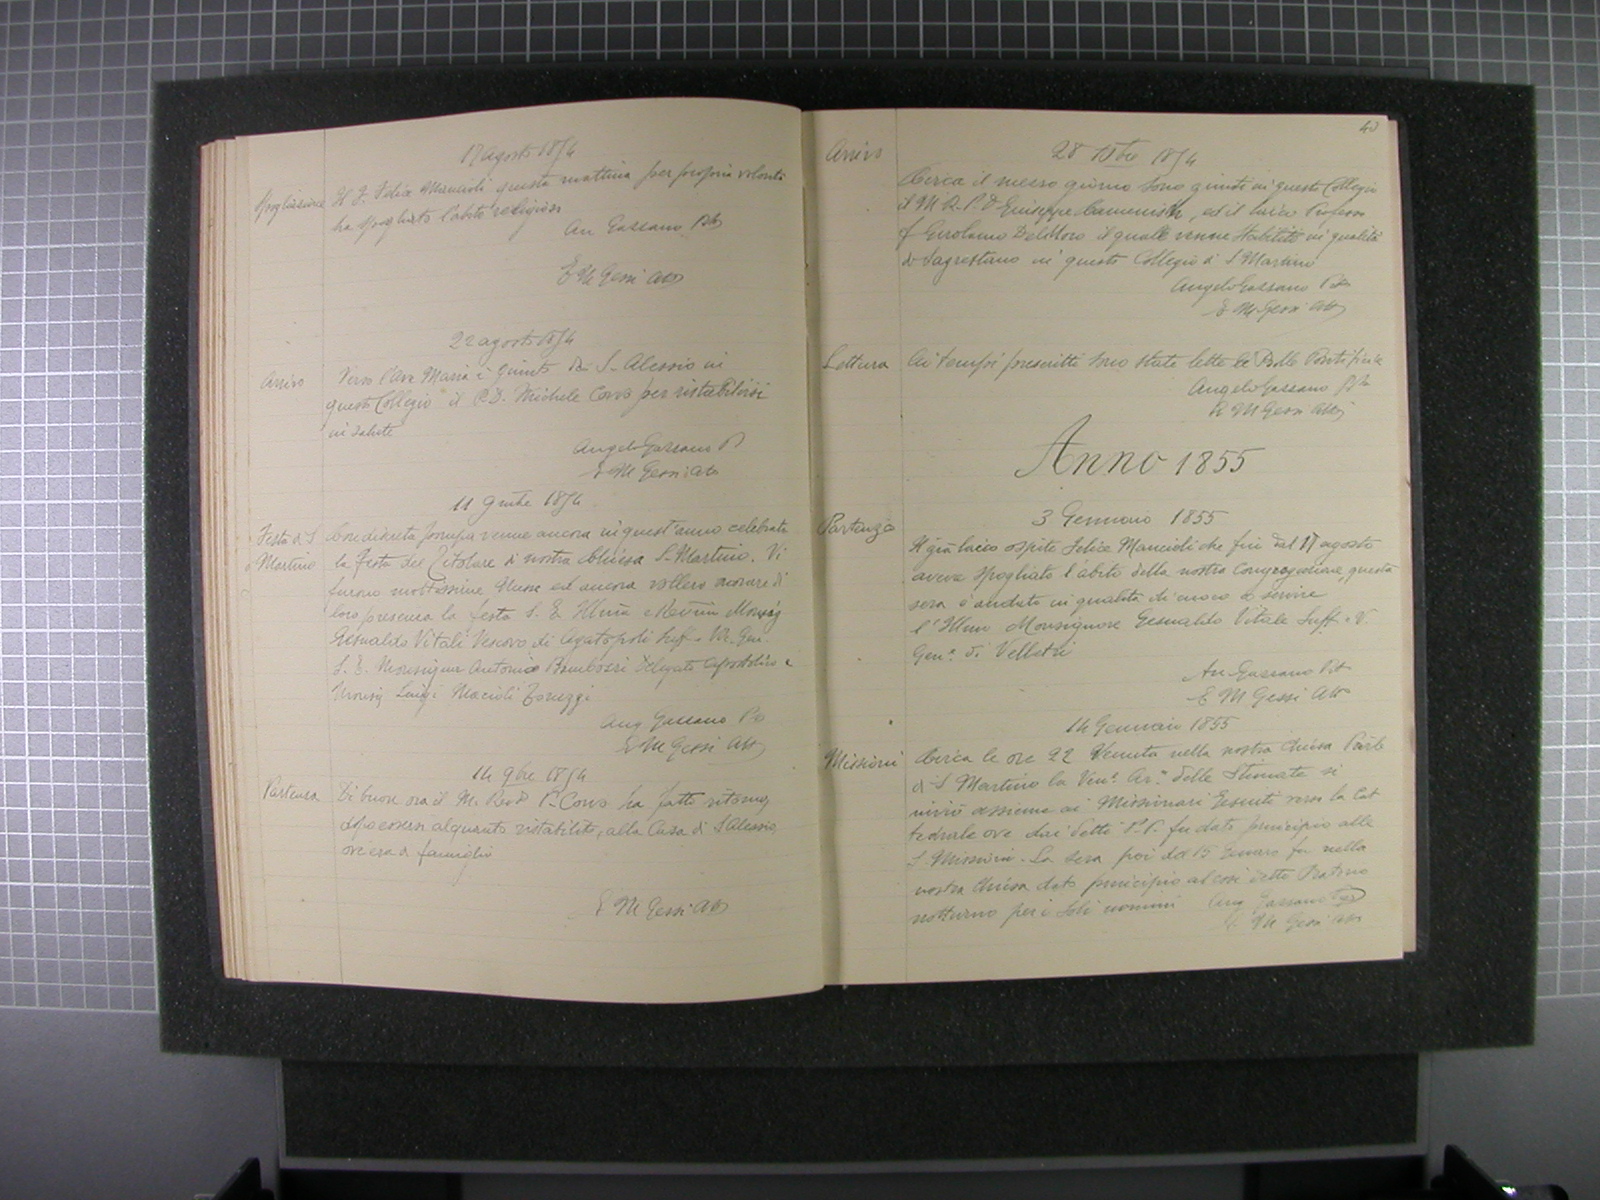 17 agosto 1854
Spogliazione Il F. Felice Mancioli questa mattina per propria volontà
ha spogliato l'abito religioso
An Gassano Pto
E M Gessi Atto
22 agosto 1854
Arrivo Verso l'Ave Maria è giunto da S. Alessio in
questo Collegio il P.D. Michele Corvo per ristabilirsi
in salute
Angelo Gassano P
E M Gessi Atto
11 9mbre 1854
Festa di S Con discreta pompa venne ancora in quest'anno celebrata
Martino la Festa del Titolare di nostra Chiesa S. Martino. Vi
furono moltissime Messe ed ancora vollero onorare di
loro presenza la festa S. E. Illma e Revma Monsig
Gesualdo Vitali Vescovo di Agatopoli Suff. e Vic. Gen.
S. E. Monsignor Antonio Delegato Apostolico e
Monsig Luigi Macioti Toruzzi
Ang Gassano Pto
E M Gessi Atto
14 9bre 1854
Partenza Di buon ora il M. Revdo P. Corvo ha fatto ritorno
dopo essersi alquanto ristabilito, alla Casa di S. Alessio,
ove era di famiglia
E M Gessi Atto
40
Arrivo 28 Xbre 1854
Circa il mezzo giorno sono giunti in questo Collegio
il M. R. P. D Giuseppe Camenisch, ed il laico Professo
f Girolamo Dal Moro il quale venne stabilito in qualità
di Sagrestano in questo Collegio di S Martino
Angelo Gassano Pto
E M Gessi Atto
Lettura Ai tempi prescritti sono state lette le Bolle Pontificie
Angelo Gassano Pto
E M Gessi Atto
Anno 1855
3 Gennaio 1855
Partenza Il già laico ospite Felice Mancioli che fin dal 17 agosto
aveva spogliato l'abito della nostra Congregazione, questa
sera è andato in qualità di cuoco a servire
l'Illmo Monsignore Gesualdo Vitale Suff. e V.
Gen.e di Velletri
An Gassano Pto
E M Gessi Atto
14 Gennaio 1855
Missioni Circa le ore 22 Venuta nella nostra Chiesa Parle
di S Martino la Ven.e Ar.a delle Stimate si
inviò assieme ai Missionari Gesuiti verso la Cat
tedrale ove dai detti P.P. fu dato principio alle
S. Missioni. La sera poi del 15 Gennaro fu nella
nostra chiesa dato principio al così detto
notturno per i soli uomini Ang Gassano Pto
E M Gessi Atto